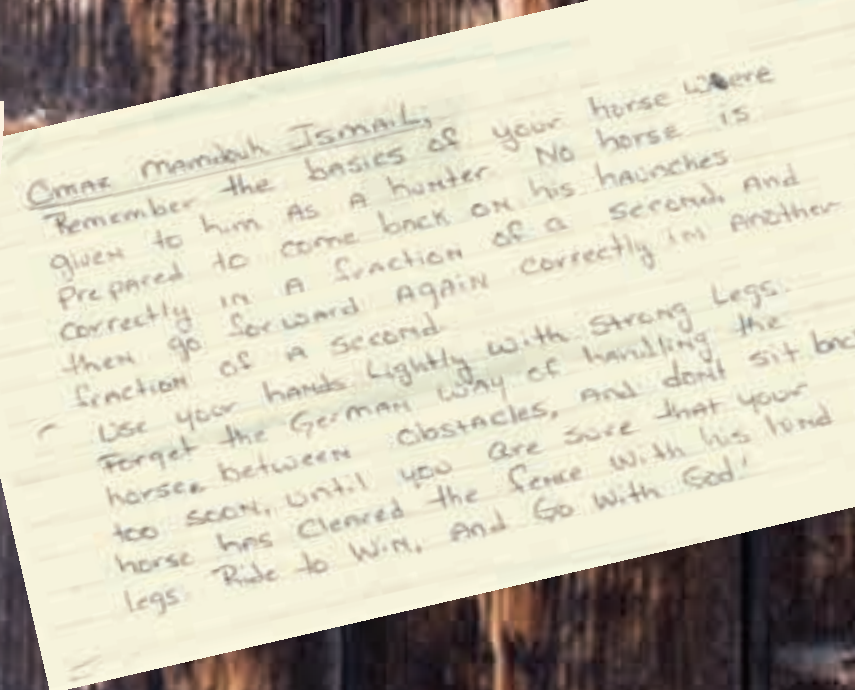 Omar mamdouh Ismail,
Remember the basics of your horse where
given to him As A hunter. No horse is
prepared to come back on his haunches
correctly in A fraction of a second, And
then go forward AGAIN correctly in Another
fraction of A second.
Use your hands Lightly with strong Legs.
Forget the German way of handling the
horses between obstacles, And don't sit back
too soon, until you are sure that your
horse has cleared the fence with his hind
legs. Ride to Win, And Go With God!